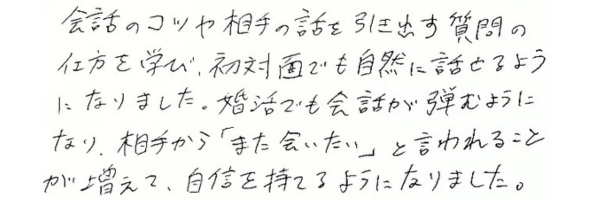 会話のコツや相手の話を引き出す質問の
仕方を学び、初対面でも自然に話せるよう
になりました。婚活でも会話が弾むように
なり、相手から「また会いたい」と言われること
が増えて、自信を持てるようになりました。